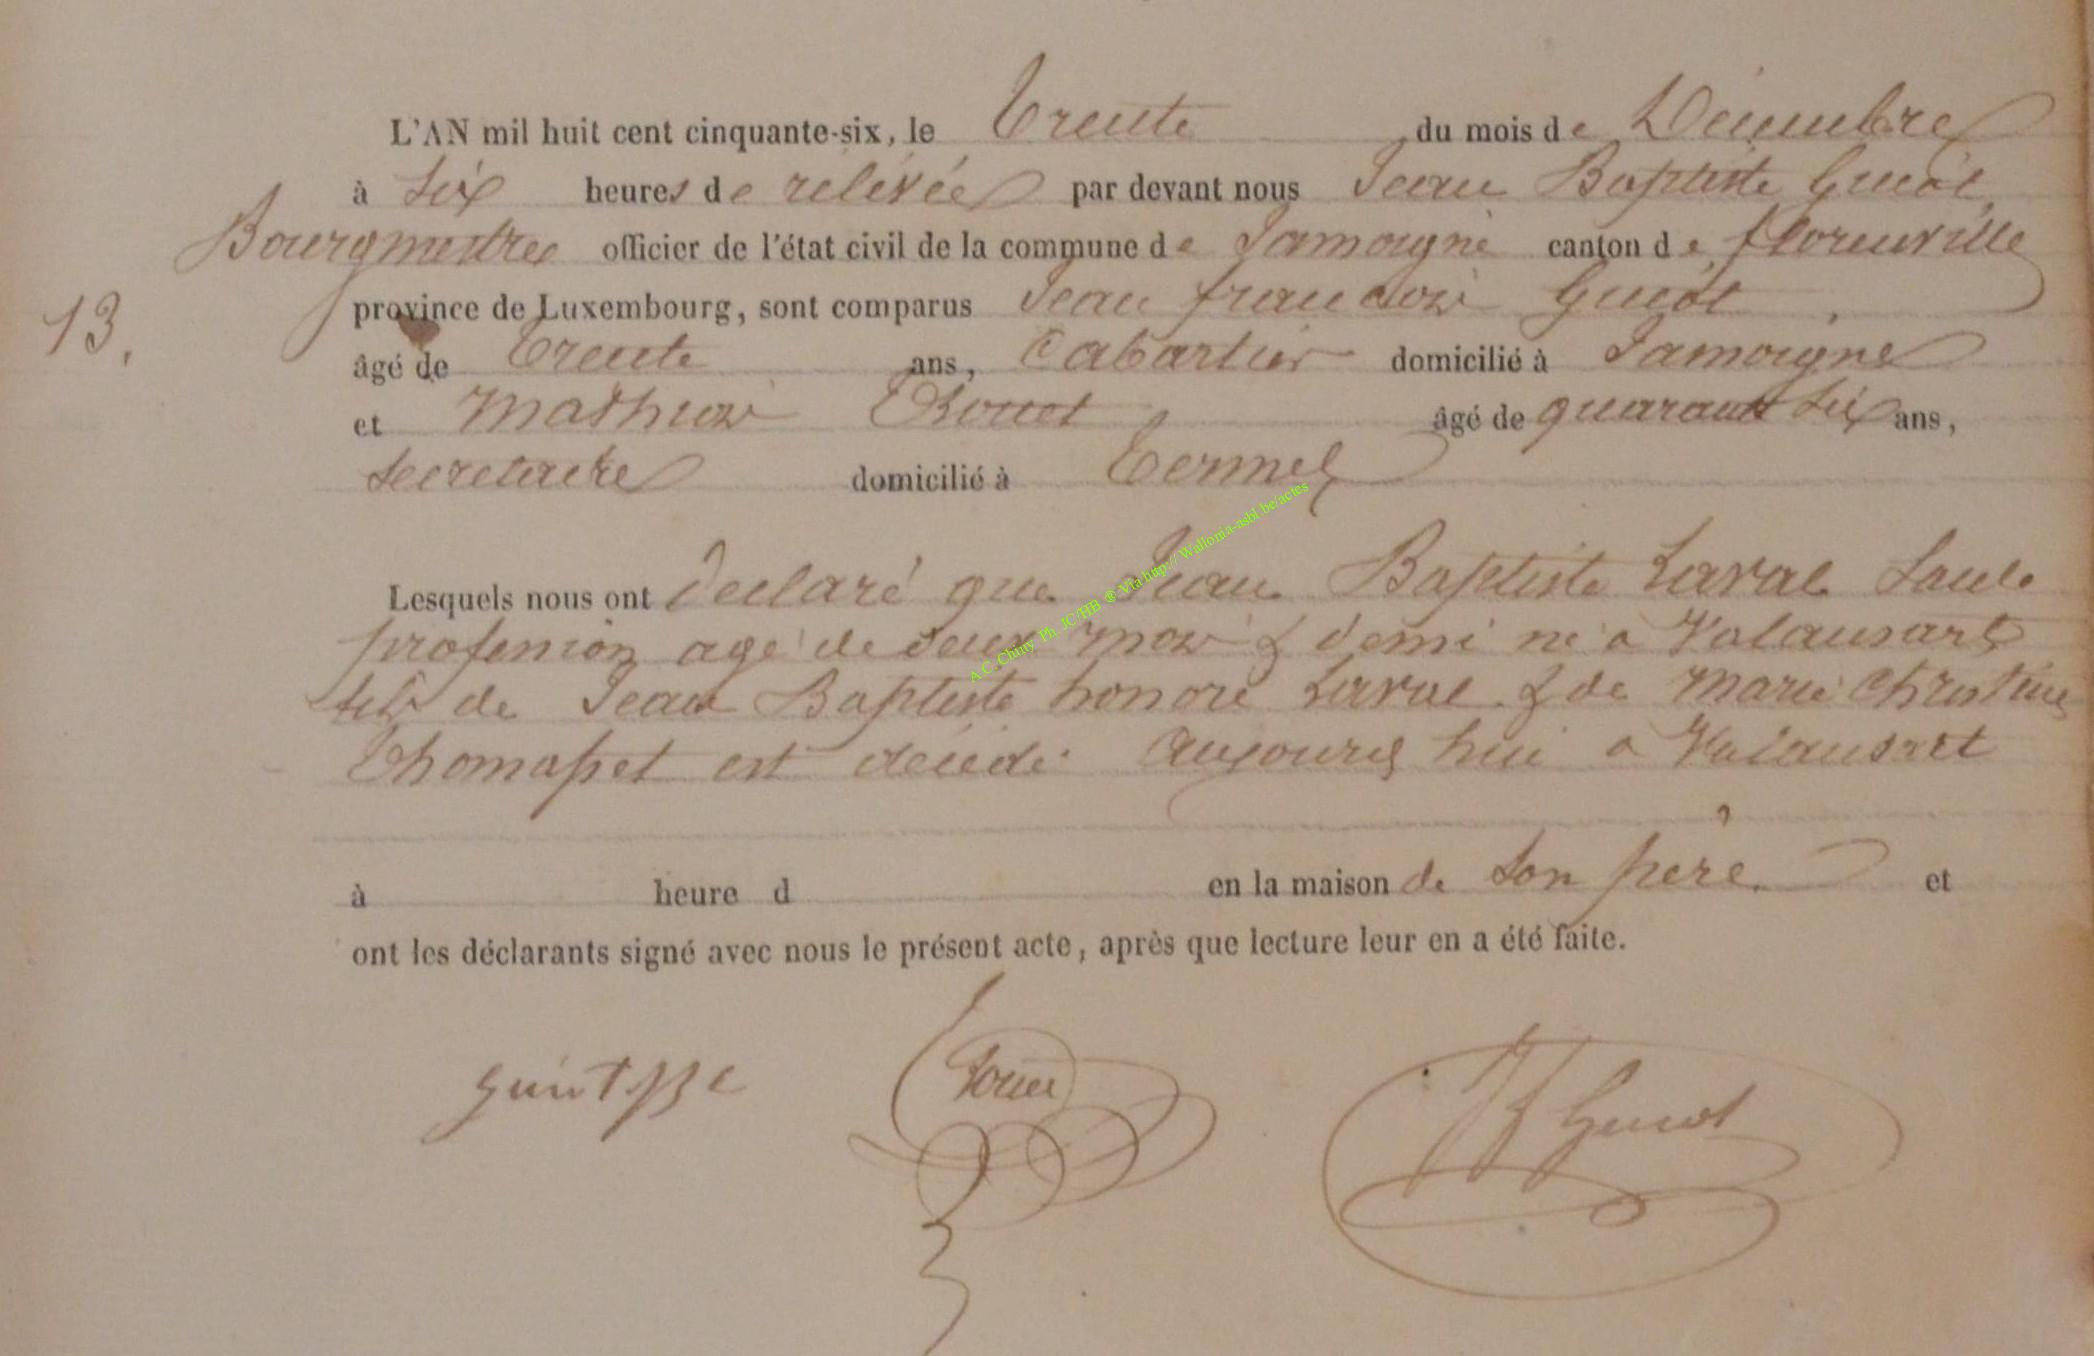 L'AN mil huit cent cinquante-six, le Trente du mois de Decembre
à six heures de relevée par devant nous Jean Baptiste Guiot
Bourgmestre officier de l'état civil de la commune de Jamoigne canton de florenville
13.
province de Luxembourg, sont comparus Jean francois Guiot
âgé de trente ans, Cabartier domicilié à Jamoigne
et Mathieu âgé de quarante six ans,
secretaire domicilié à Termes
A.C. Chiny Ph. JC/HB ® Via http://Wallonia-asbl.be/actes
Lesquels nous ont declaré que Jean Baptiste Laval sans
profession agé de deux mois & demi né a Valansart
fils de Jean Baptiste honoré Laval & de Marie Christine
Thomasset est décédé aujourd hui a Valansart
à heure d en la maison de son père. et
ont les déclarants signé avec nous le présent acte, après que lecture leur en a été faite.
JB Guiot